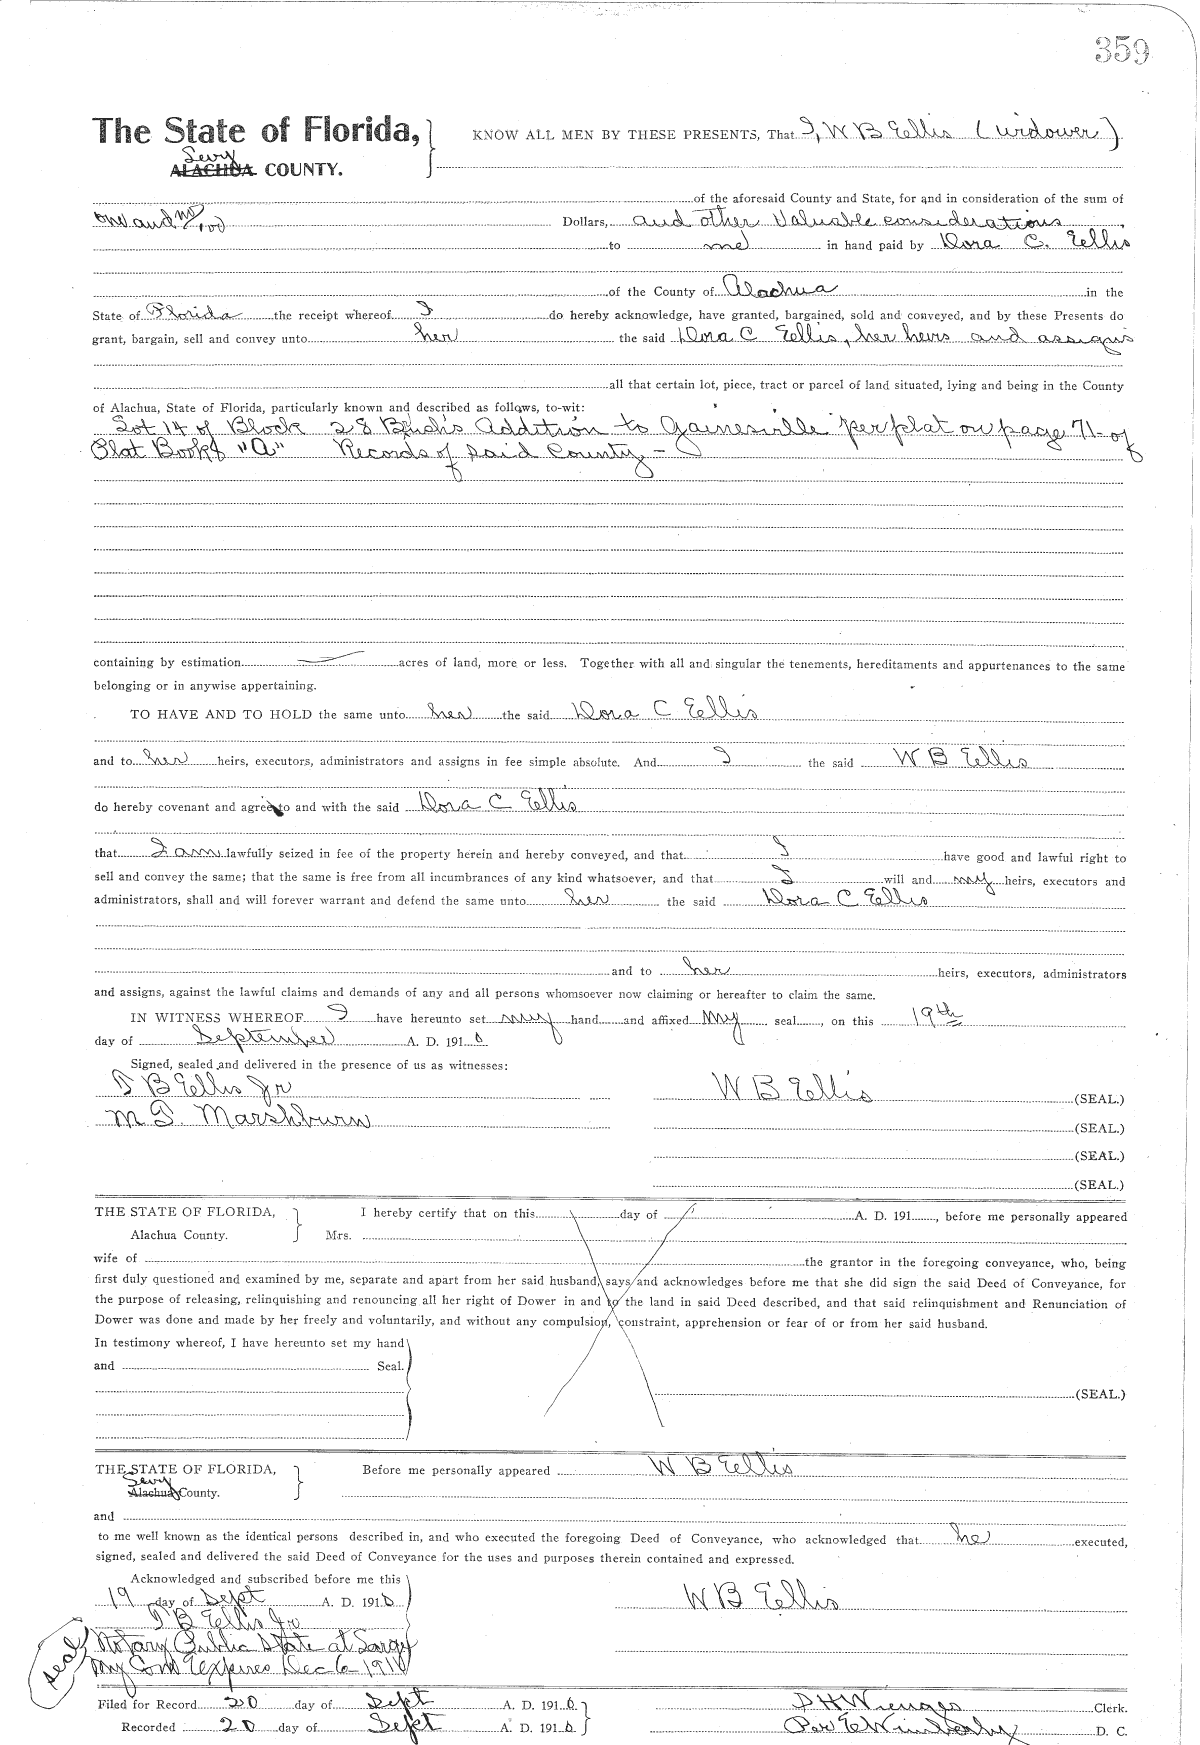 359
The State of Florida, KNOW ALL MEN BY THESE PRESENTS, That I, W B Ellis (widower)
Levy
ALACHUA COUNTY.
of the aforesaid County and State, for and in consideration of the sum of
one and no/100 Dollars, and other Valuable considerations
to me in hand paid by Dora C. Ellis
of the County of Alachua in the
State of Florida the receipt whereof I do hereby acknowledge, have granted, bargained, sold and conveyed, and by these Presents do
grant, bargain, sell and convey unto her the said Dora C Ellis, her heirs and assigns
all that certain lot, piece, tract or parcel of land situated, lying and being in the County
of Alachua, State of Florida, particularly known and described as follows, to-wit:
Lot 14 of Block 28 Brush's Addition to Gainesville per plat on page 71 of
Plat Book "A" Records of said County -
containing by estimation acres of land, more or less. Together with all and singular the tenements, hereditaments and appurtenances to the same
belonging or in anywise appertaining.
TO HAVE AND TO HOLD the same unto her the said Dora C Ellis
and to her heirs, executors, administrators and assigns in fee simple absolute. And I the said W B Ellis
do hereby covenant and agree to and with the said Dora C Ellis
that I am lawfully seized in fee of the property herein and hereby conveyed, and that I have good and lawful right to
sell and convey the same; that the same is free from all incumbrances of any kind whatsoever, and that I will and my heirs, executors and
administrators, shall and will forever warrant and defend the same unto her the said Dora C Ellis
and to her heirs, executors, administrators
and assigns, against the lawful claims and demands of any and all persons whomsoever now claiming or hereafter to claim the same.
IN WITNESS WHEREOF I have hereunto set my hand and affixed my seal, on this 19th
day of September A. D. 1910
Signed, sealed and delivered in the presence of us as witnesses:
T B Ellis Jr W B Ellis (SEAL.)
M D. Marshburn (SEAL.)
(SEAL.)
(SEAL.)
THE STATE OF FLORIDA, I hereby certify that on this day of A. D. 191 , before me personally appeared
Alachua County. Mrs.
wife of the grantor in the foregoing conveyance, who, being
first duly questioned and examined by me, separate and apart from her said husband, says and acknowledges before me that she did sign the said Deed of Conveyance, for
the purpose of releasing, relinquishing and renouncing all her right of Dower in and to the land in said Deed described, and that said relinquishment and Renunciation of
Dower was done and made by her freely and voluntarily, and without any compulsion, constraint, apprehension or fear of or from her said husband.
In testimony whereof, I have hereunto set my hand
and Seal.
(SEAL.)
THE STATE OF FLORIDA, Before me personally appeared W B Ellis
Levy
Alachua County.
and
to me well known as the identical persons described in, and who executed the foregoing Deed of Conveyance, who acknowledged that he executed,
signed, sealed and delivered the said Deed of Conveyance for the uses and purposes therein contained and expressed.
Acknowledged and subscribed before me this
19 day of Sept A. D. 1910 W B Ellis
T B Ellis Jr
Seal Notary Public State at Large
My Com Expires Dec 6 1910
Filed for Record 20 day of Sept A. D. 1910 Clerk.
Recorded 20 day of Sept A. D. 1910 Per E Wimberly D. C.